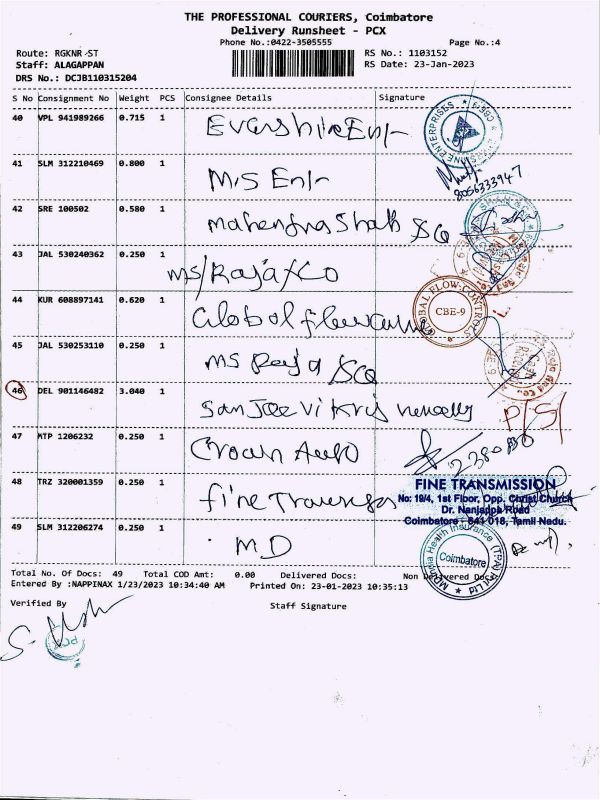 THE PROFESSIONAL COURIERS, Coimbatore
Delivery Runsheet - PCX
Phone No.:0422-3505555
Page No.:4
Route: RGKNR-ST
RS No.: 1103152
Staff: ALAGAPPAN
RS Date: 23-Jan-2023
DRS No.: DCJB110315204
S No Consignment No Weight PCS Consignee Details Signature
40 VPL 941989266 0.715 1
41 SLM 312210469 0.800 1 M/S Ent-
8056333947
42 SRE 100502 0.580 1 Mahendra Shah
43 JAL 530240362 0.250 1 MS/Raja &Co
44 KUR 608897141 0.620 1 Global
GLOBAL FLOW-CONTROLS
CBE-9
45 JAL 530253110 0.250 1 MS Raja
46 DEL 901146482 3.040 1
P/S/
47 MTP 1206232 0.250 1 Crown Auto
48 TRZ 320001359 0.250 1 fine
FINE TRANSMISSION
No: 19/4, 1st Floor, Opp. Christ Church
Dr. Nanjappa Road
Coimbatore - 641 018, Tamil Nadu.
49 SLM 312206274 0.250 1 MD
Health Insurance (TPA)
Coimbatore
Total No. Of Docs: 49 Total COD Amt: 0.00 Delivered Docs: Non Delivered Docs:
Entered By :NAPPINAX 1/23/2023 10:34:40 AM Printed On: 23-01-2023 10:35:13
Verified By
Staff Signature